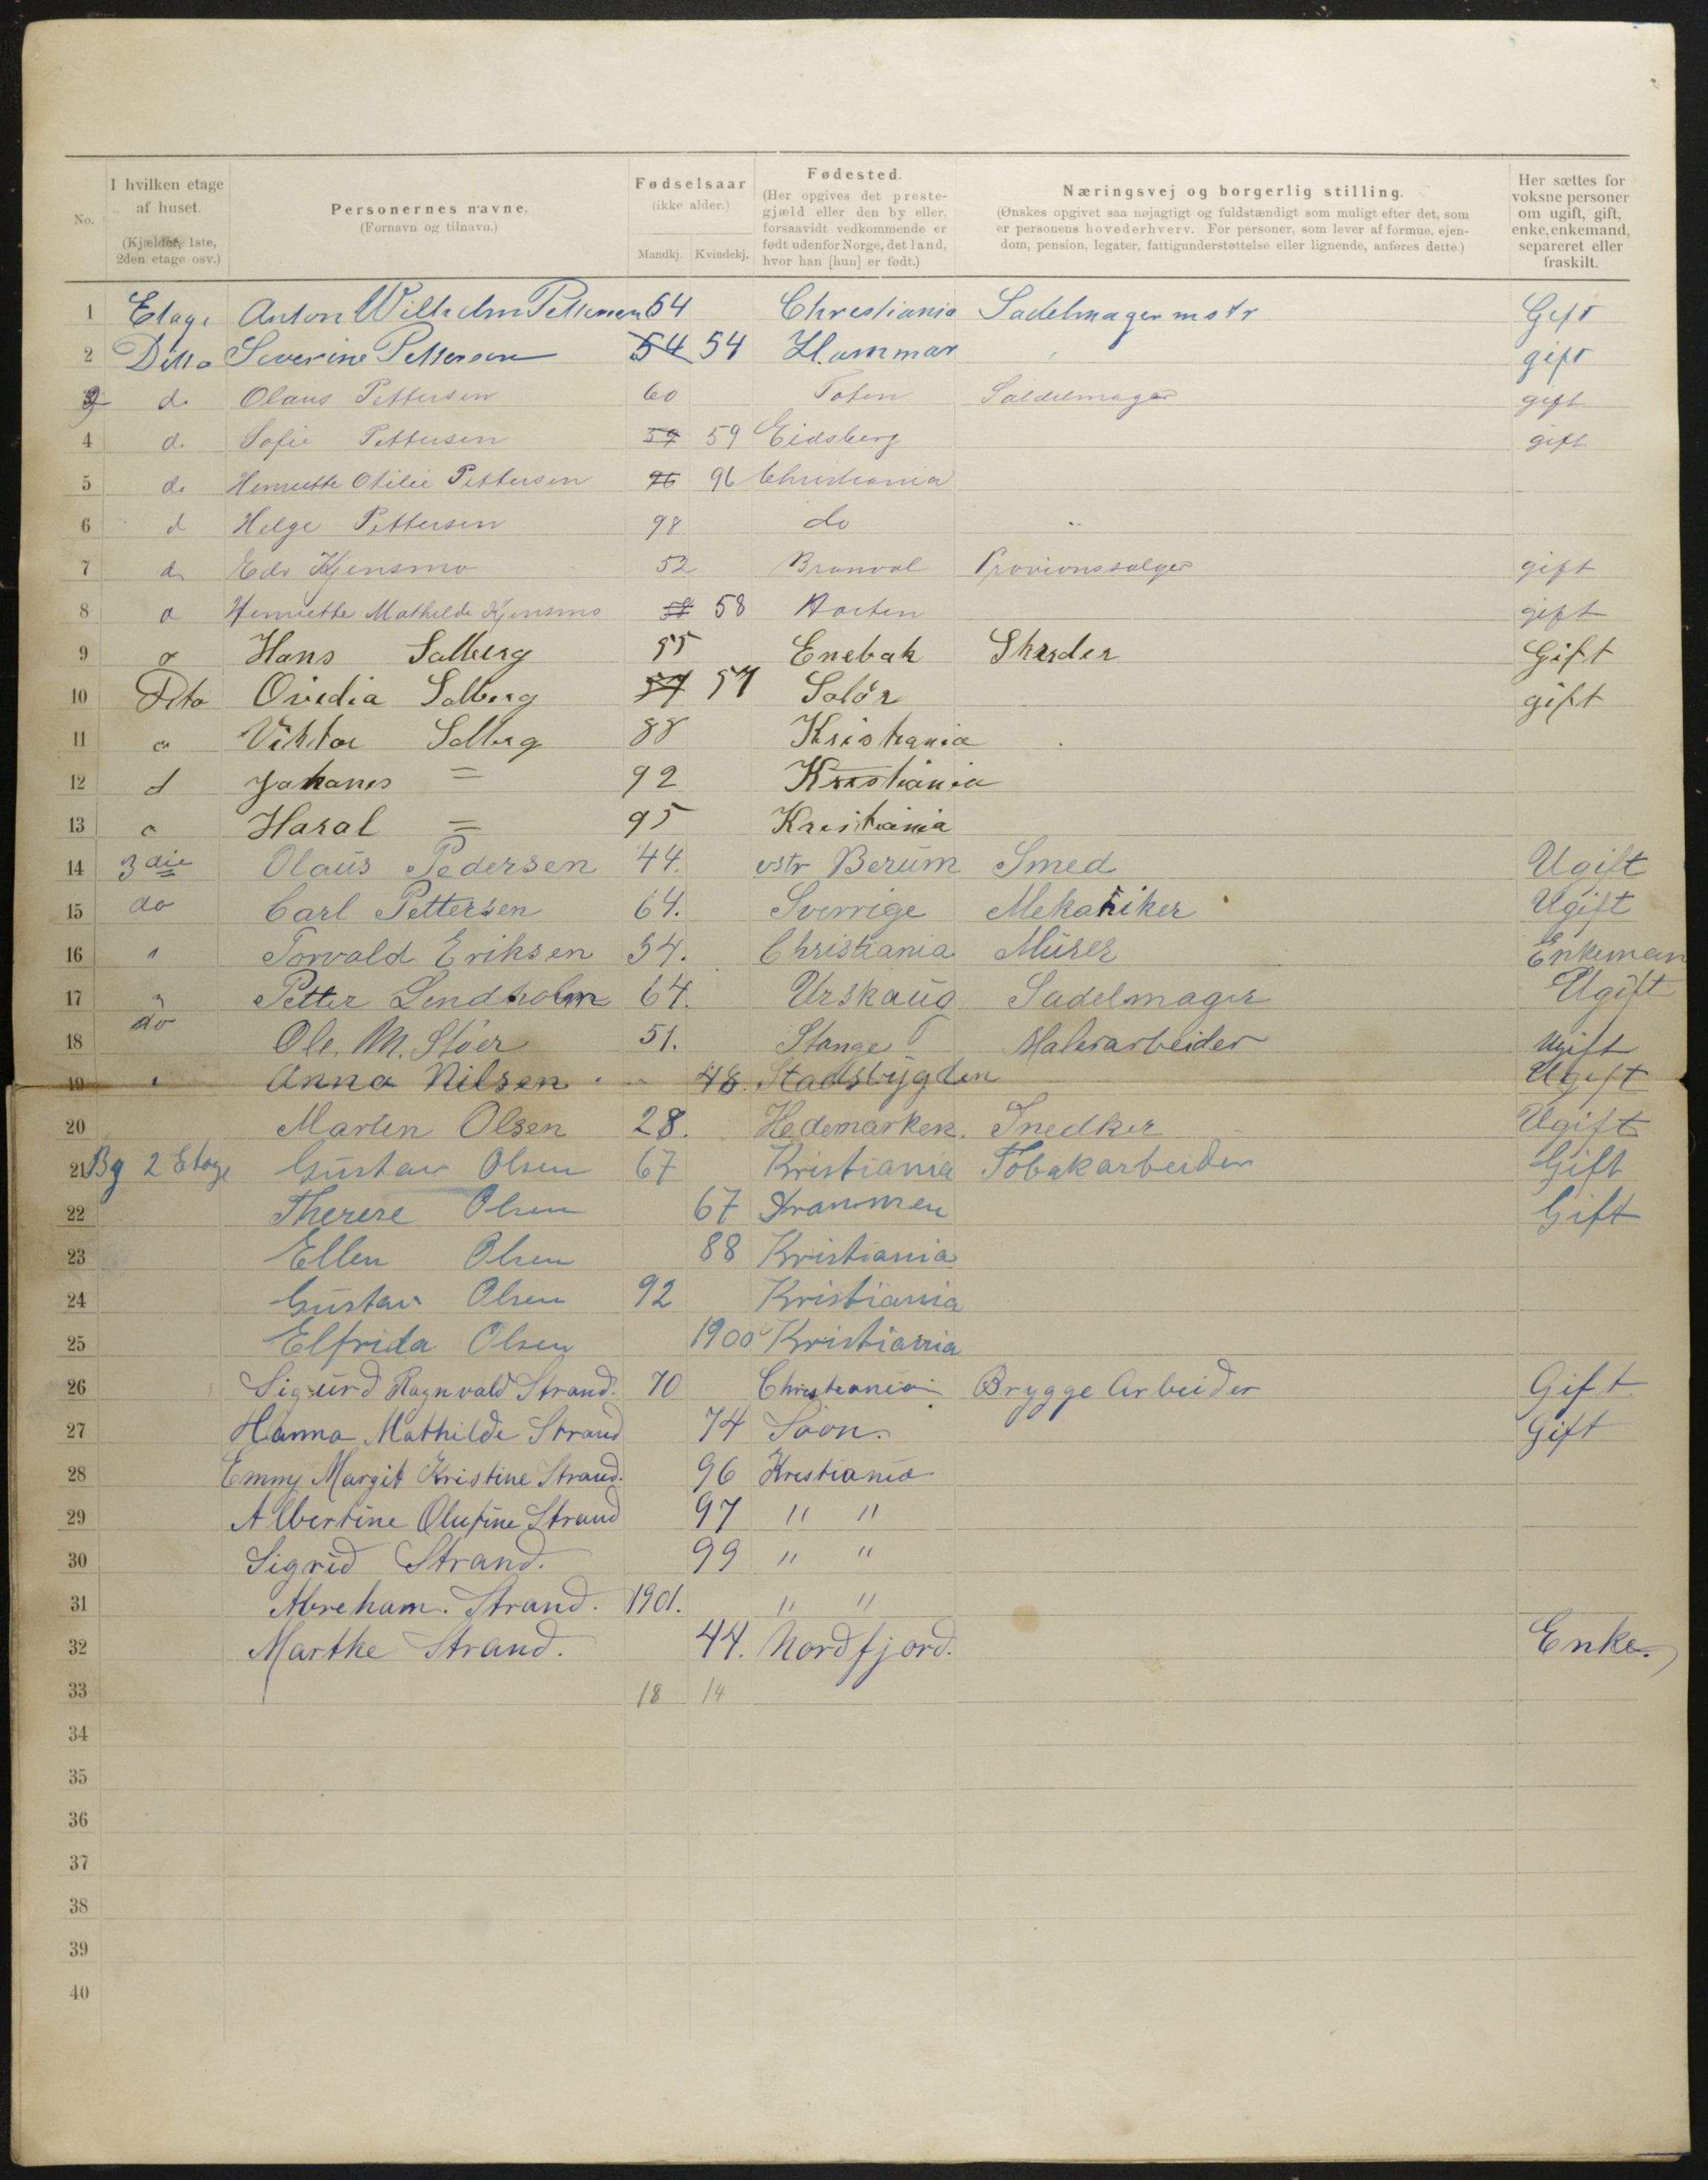 No. I hvilken etage af huset. (Kjælder, 1ste, 2den etage osv.) Personernes navne. (Fornavn og tilnavn.) Fødselsaar (ikke alder.) Mandkj. Kvindekj. Fødested. (Her opgives det prestegjæld eller den by eller, forsaavidt vedkommende er født udenfor Norge, det land, hvor han [hun] er født.) Næringsvej og borgerlig stilling. (Ønskes opgivet saa nøjagtigt og fuldstændigt som muligt efter det, som er personens hovederhverv. For personer, som lever af formue, ejendom, pension, legater, fattigunderstøttelse eller lignende, anføres dette.) Her sættes for voksne personer om ugift, gift, enke, enkemand, separeret eller fraskilt.
1 Etage Anton Wilhelm Pettersen 54 Christiania Sadelmagermstr Gift
2 Ditto Severine Pettersen 54 54 H.ammar gift
3 do Olaus Pettersen 60 Toten Saddelmager gift
4 do Sofie Pettersen 59 59 Eidsberg gift
5 do Henriette Otilie Pettersen 96 96 Christiania
6 d Helge Pettersen 98 do
7 do Edv Kjensmo 52 Branval Provionssælger gift
8 Henriette Mathilde Kjensmo 58 58 Horten gift
9 Hans Solberg 55 Enebak Skrder Gift
10 Dito Ovidia Solberg 57 57 Solör gift
11 Viktor Solberg 88 Kristiania
12 d Johanes = 92 Kristiania
13 Haral = 95 Kristiania
14 3 die Olaus Pedersen 44. vstr Berum Smed Ugift
15 do Carl Pettersen 64. Sverrige Mekaniker Ugift
16 " Torvald Eriksen 54. Christiania Murer Enkeman
17 " Petter Lendholm 64. Urskaug Sadelmager Ugift
18 do Ole. M. Stöer 51. Stange Malerarbeider Ugift
19 " Anna Nilsen 48. Stadsbygden Ugift
20 Marten Olsen 28. Hedemarken. Snedker Ugift
21 Bg 2 Etage Gustav Olsen 67 Kristiania Tobakarbeider Gift
22 Therese Olsen 67 Drammen Gift
23 Ellen Olsen 88 Kristiania
24 Gustav Olsen 92 Kristiania
25 Elfrida Olsen 1900 Kristiania
26 Sigurd Ragnvald Strand. 70 Christiania Brygge Arbeider Gift
27 Hanna Mathilde Strand 74 Soon. Gift
28 Emmy Margit Kristine Strand. 96 Kristiania
29 Albertine Olufine Strand 97 " "
30 Sigrid Strand. 99 " "
31 Abreham. Strand. 1901. " "
32 Marthe Strand. 44. Nordfjord. Enke.
33 18 14
34
35
36
37
38
39
40